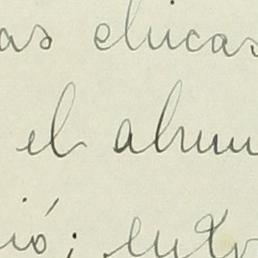 as chicas
el alum
ió; entr